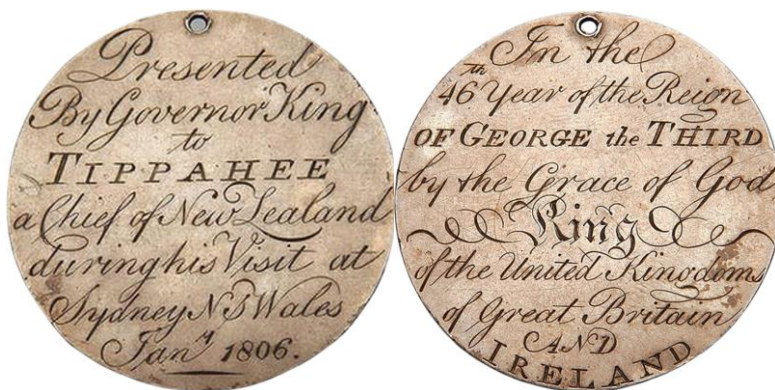 Presented
By Governor King
to
TIPPAHEE
a Chief of New Zealand
during his Visit at
Sydney NS Wales
Jany 1806.
In the
46th Year of the Reign
OF GEORGE the THIRD
by the Grace of God
King
of the United Kingdoms
of Great Britain
AND
IRELAND